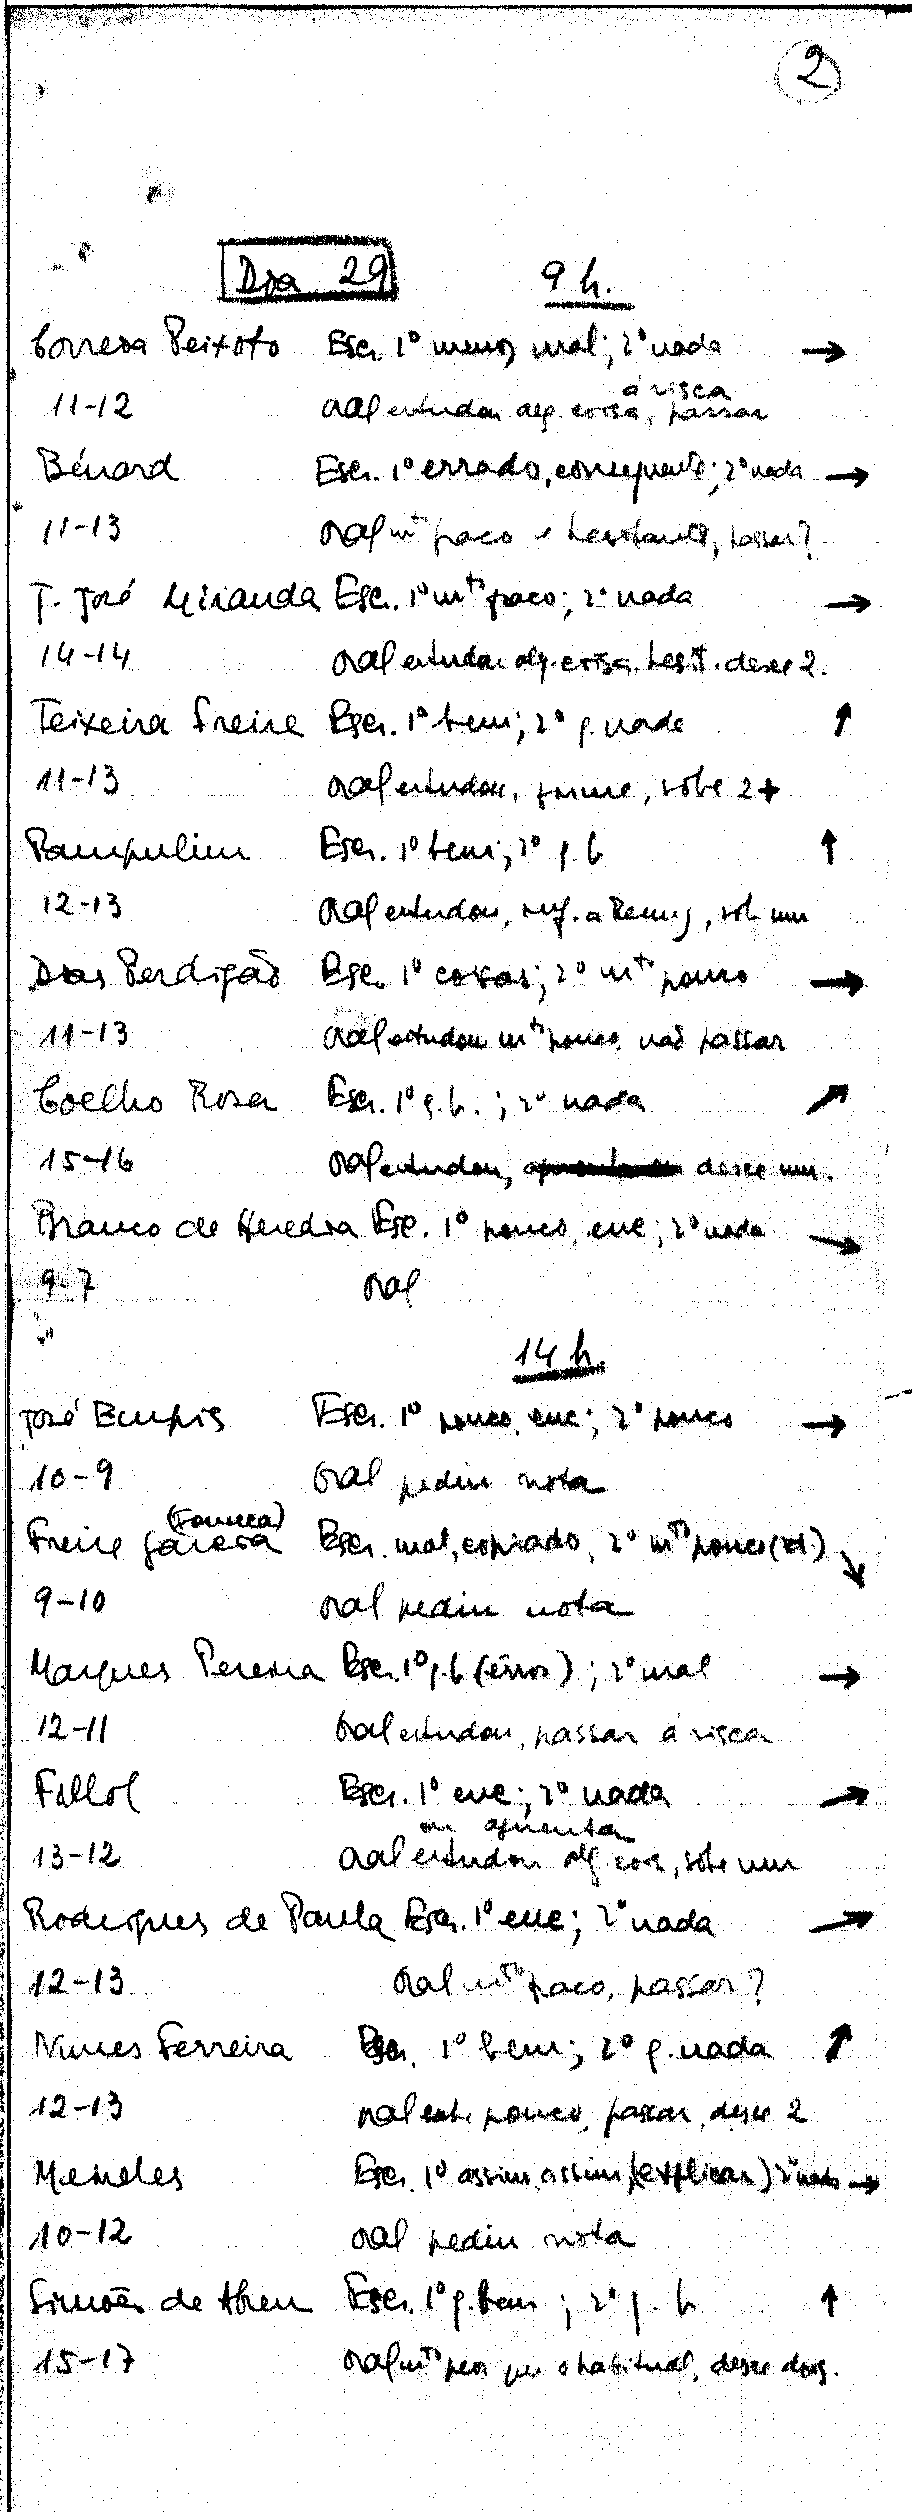 2
Dia 29 9 h.
Correia Peixoto Escr. 1º menos mal; 2º nada →
à risca
11-12 oral estudou alg. coisa, passar
Bénard Escr. 1º errado, consequente; 2º nada →
11-13 oral mto fraco e hesitante, passar?
T. José Miranda Esc. 1º mto fraco; 2º nada →
14-14 oral estudou alg. coisa, hesit. desce 2.
Teixeira Freire Escr. 1º bem; 2º q. nada ↑
11-13 oral estudou, firme, sobe 2+
Pampulim Escr. 1º bem; 2º q. b ↑
12-13 oral estudou, sobe um
Dias Perdigão Esc. 1º coisas; 2º mto pouco →
11-13 oral estudou mto pouco, não passar
Coelho Rosa Escr. 1º q. b. ; 2º nada ↗
15-16 oral estudou, desce um.
Branco de Heredia Esc. 1º pouco, ; 2º nada →
9-7 oral
14 h.
José Empis Escr. 1º pouco, ; 2º pouco →
10-9 oral pediu nota
(Fonseca)
Freire Garcia Escr. mal, copiado, 2º mto pouco ↘
9-10 oral pediu nota
Marques Pereira Escr. 1º q. b (erros) ; 2º mal →
12-11 oral estudou, passar à risca
Fallol Escr. 1º ; 2º nada →
ou aguenta
13-12 oral estudou alg. coisa, sobe um
Rodrigues de Paula Escr. 1º ; 2º nada →
12-13 oral mto fraco, passar?
Nunes Ferreira Escr. 1º bem; 2º q. nada ↑
12-13 oral est. pouco, passar, desce 2
Meneles Escr. 1º assim assim (explicar) 2º nada →
10-12 oral pediu nota
Simões de Abreu Escr. 1º q. bem ; 2º q. b ↑
15-17 oral mto pior que o habitual, desce dois.